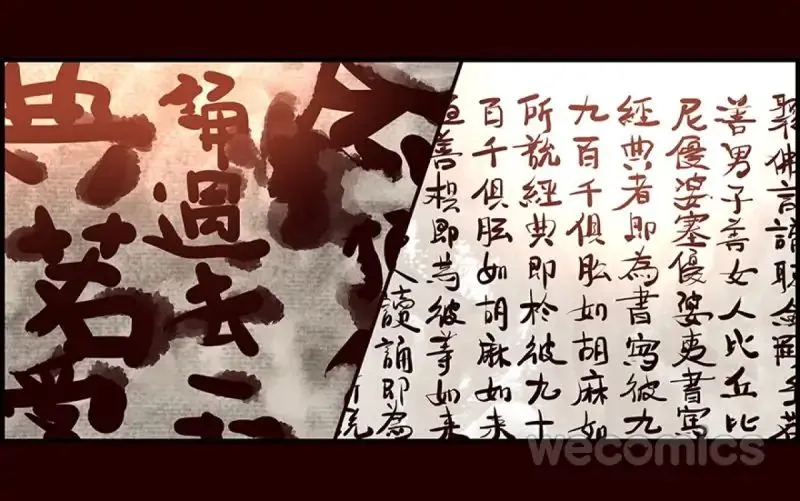 佛言諦聽金剛手若
善男子善女人比丘比
尼優婆塞優婆夷書寫
經典者即為書寫彼九
九百千俱胝如胡麻如
所說經典即於彼九十
百千俱胝如胡麻如來
善根即為彼等如來
人讀誦即為
誦過去一
典若受
wecomics